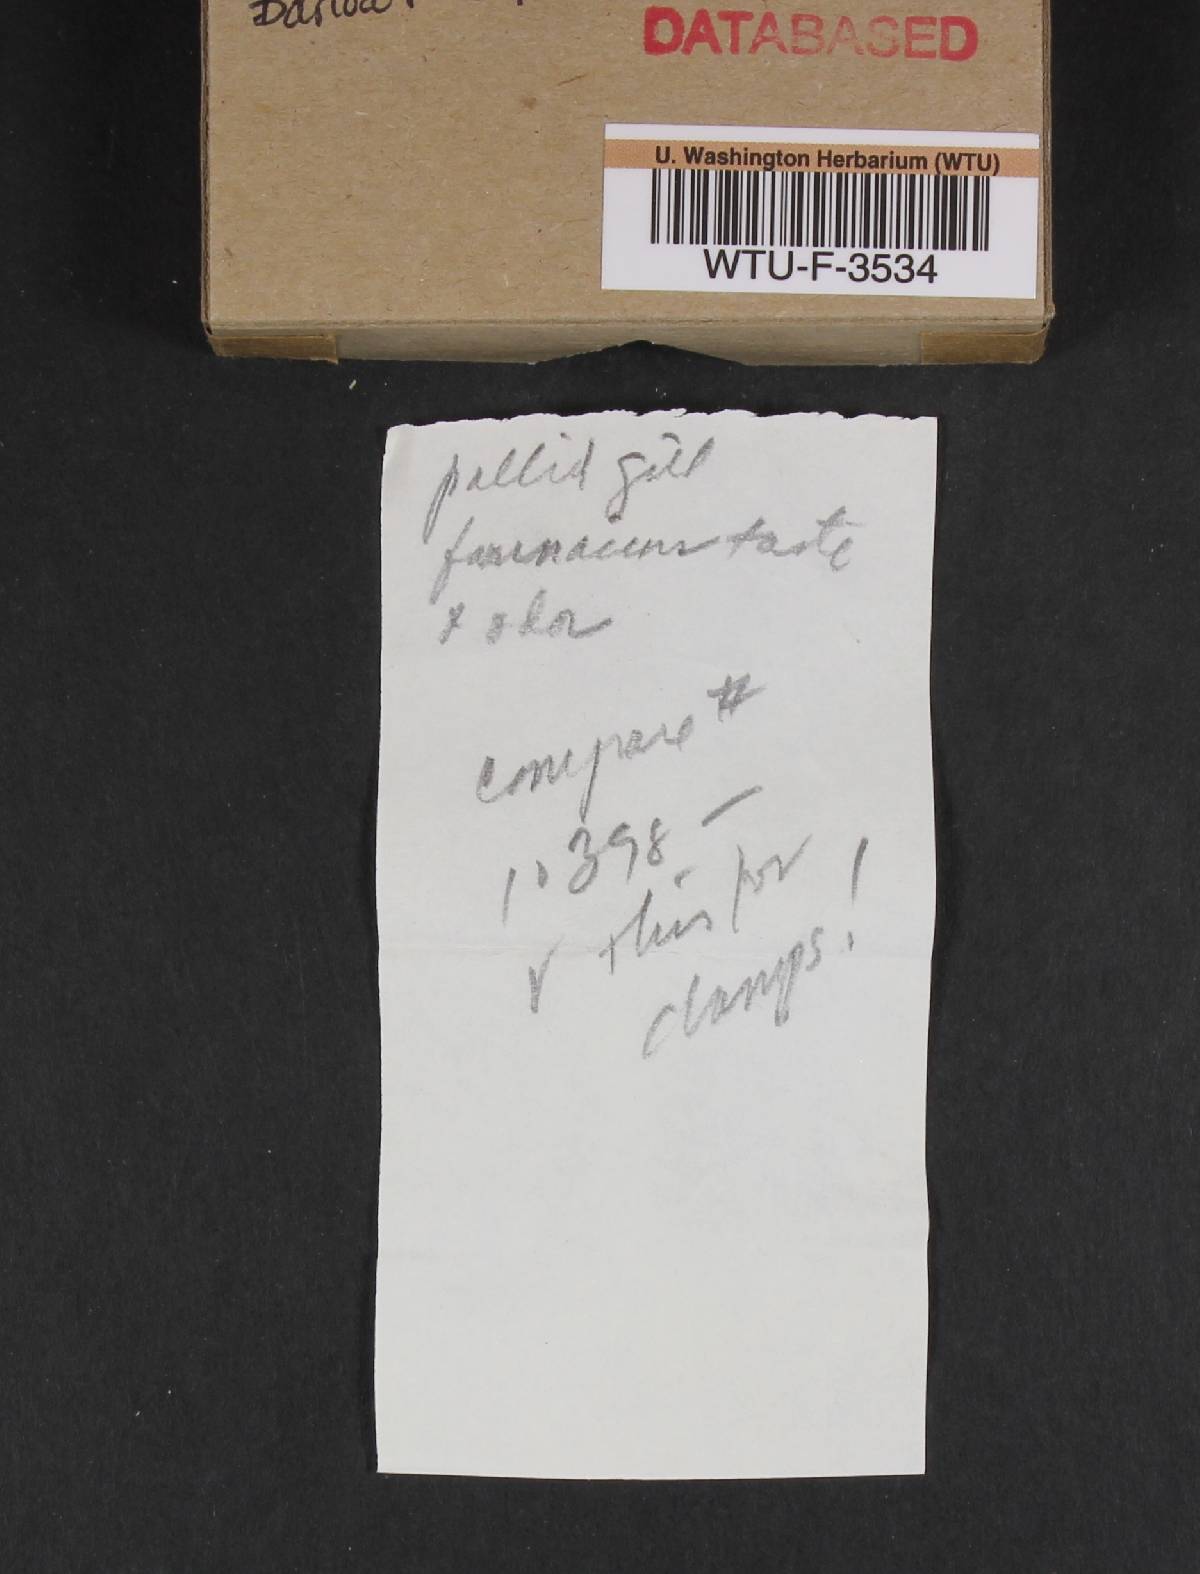 DATABASED
U. Washington Herbarium (WTU)
WTU-F-3534
pallid gill
farinaceous taste
& odor
compare #
10398 –
& this for
clamps!